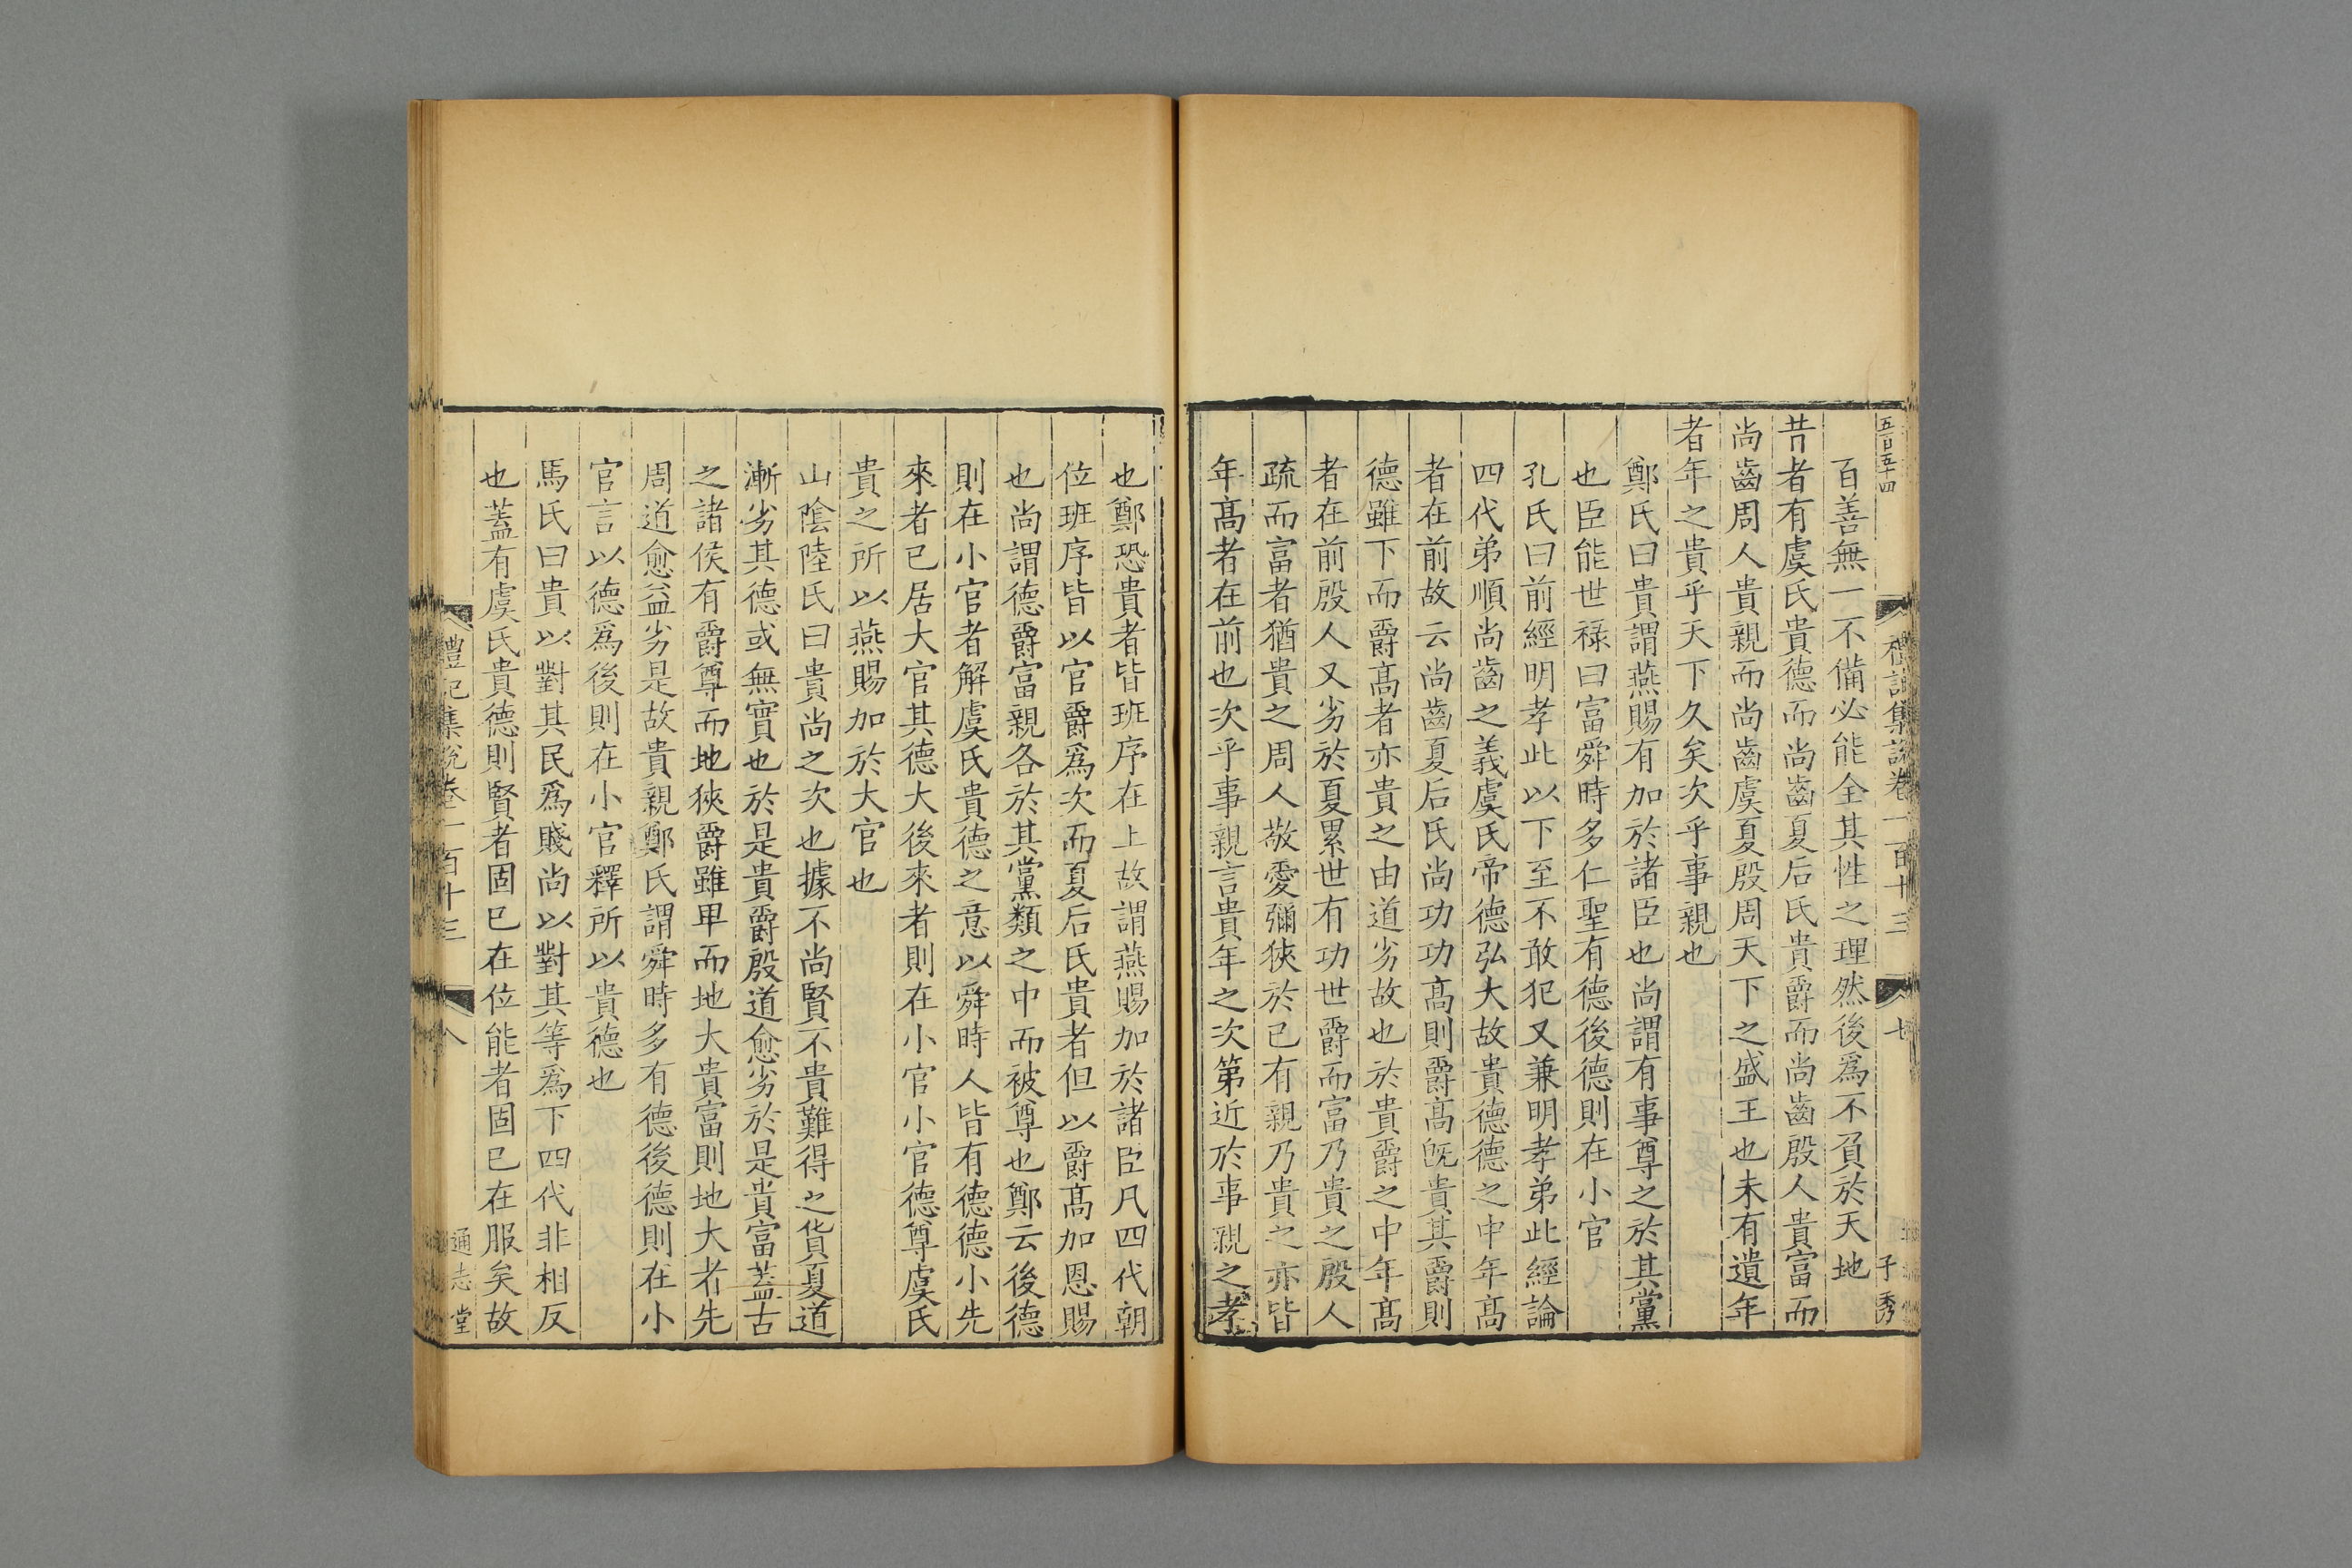 五百五十四
禮記集説卷一百十三
七
子秀
百善無一不備必能全其性之理然後爲不負於天地
昔者有虞氏貴德而尚齒夏后氏貴爵而尚齒殷人貴富而
尚齒周人貴親而尚齒虞夏殷周天下之盛王也未有遺年
者年之貴乎天下久矣次乎事親也
鄭氏曰貴謂燕賜有加於諸臣也尚謂有事尊之於其黨
也臣能世禄曰富舜時多仁聖有德後德則在小官
孔氏曰前經明孝此以下至不敢犯又兼明孝弟此經論
四代弟順尚齒之義虞氏帝德弘大故貴德德之中年髙
者在前故云尚齒夏后氏尚功功髙則爵髙旣貴其爵則
德雖下而爵髙者亦貴之由道劣故也於貴爵之中年髙
者在前殷人又劣於夏累世有功世爵而富乃貴之殷人
疏而富者猶貴之周人敬愛彌狹於己有親乃貴之亦皆
年髙者在前也次乎事親言貴年之次第近於事親之孝
也鄭恐貴者皆班序在上故謂燕賜加於諸臣凡四代朝
位班序皆以官爵爲次而夏后氏貴者但以爵髙加恩賜
也尚謂德爵富親各於其黨類之中而被尊也鄭云後德
則在小官者解虞氏貴德之意以舜時人皆有德德小先
來者已居大官其德大後來者則在小官小官德尊虞氏
貴之所以燕賜加於大官也
山隂陸氏曰貴尚之次也據不尚賢不貴難得之貨夏道
漸劣其德或無實也於是貴爵殷道愈劣於是貴富蓋古
之諸侯有爵尊而地狹爵雖卑而地大貴富則地大者先
周道愈益劣是故貴親鄭氏謂舜時多有德後德則在小
官言以德爲後則在小官釋所以貴德也
馬氏曰貴以對其民爲賤尚以對其等爲下四代非相反
也蓋有虞氏貴德則賢者固已在位能者固已在服矣故
禮記集説卷一百十三
八
通志堂